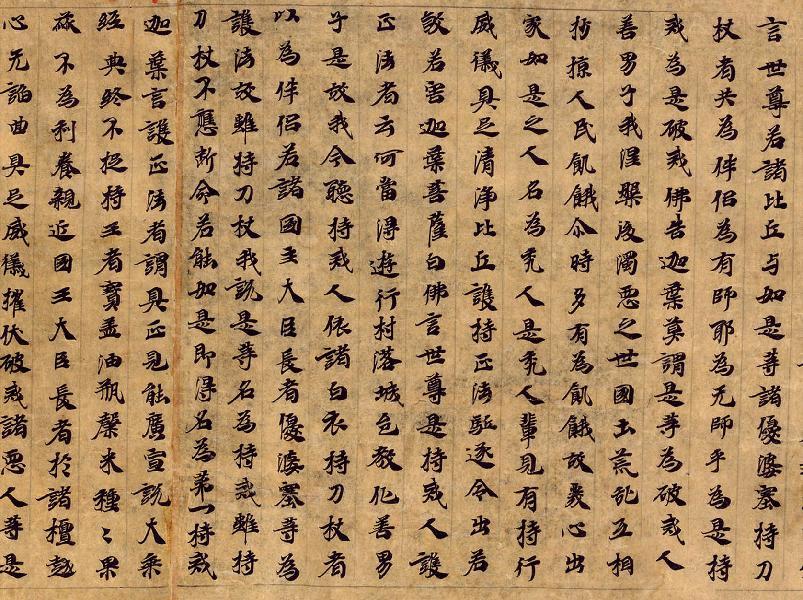 言世尊若諸比丘与如是等諸優婆塞持刀
杖者共為伴侶為有師耶為无師乎為是持
戒為是破戒佛告迦葉莫謂是等為破戒人
善男子我涅槃後濁惡之世國土荒乱互相
抄掠人民飢餓尒時多有為飢餓故發心出
家如是之人名為禿人是禿人輩見有持行
威儀具足清浄比丘護持正法駈逐令出若
煞若害迦葉菩薩白佛言世尊是持戒人護
正法者云何當得遊行村落城邑教化善男
子是故我今聽持戒人依諸白衣持刀杖者
以為伴侶若諸國王大臣長者優婆塞等為
護法故雖持刀杖我説是等名為持戒雖持
刀杖不應断命若能如是即得名為第一持戒
迦葉言護正法者謂具正見能廣宣説大乘
經典終不捉持王者寶盖油瓶槃米種〻果
蓏不為利養親近國王大臣長者於諸檀越
心无諂曲具足威儀摧伏破戒諸惡人等是